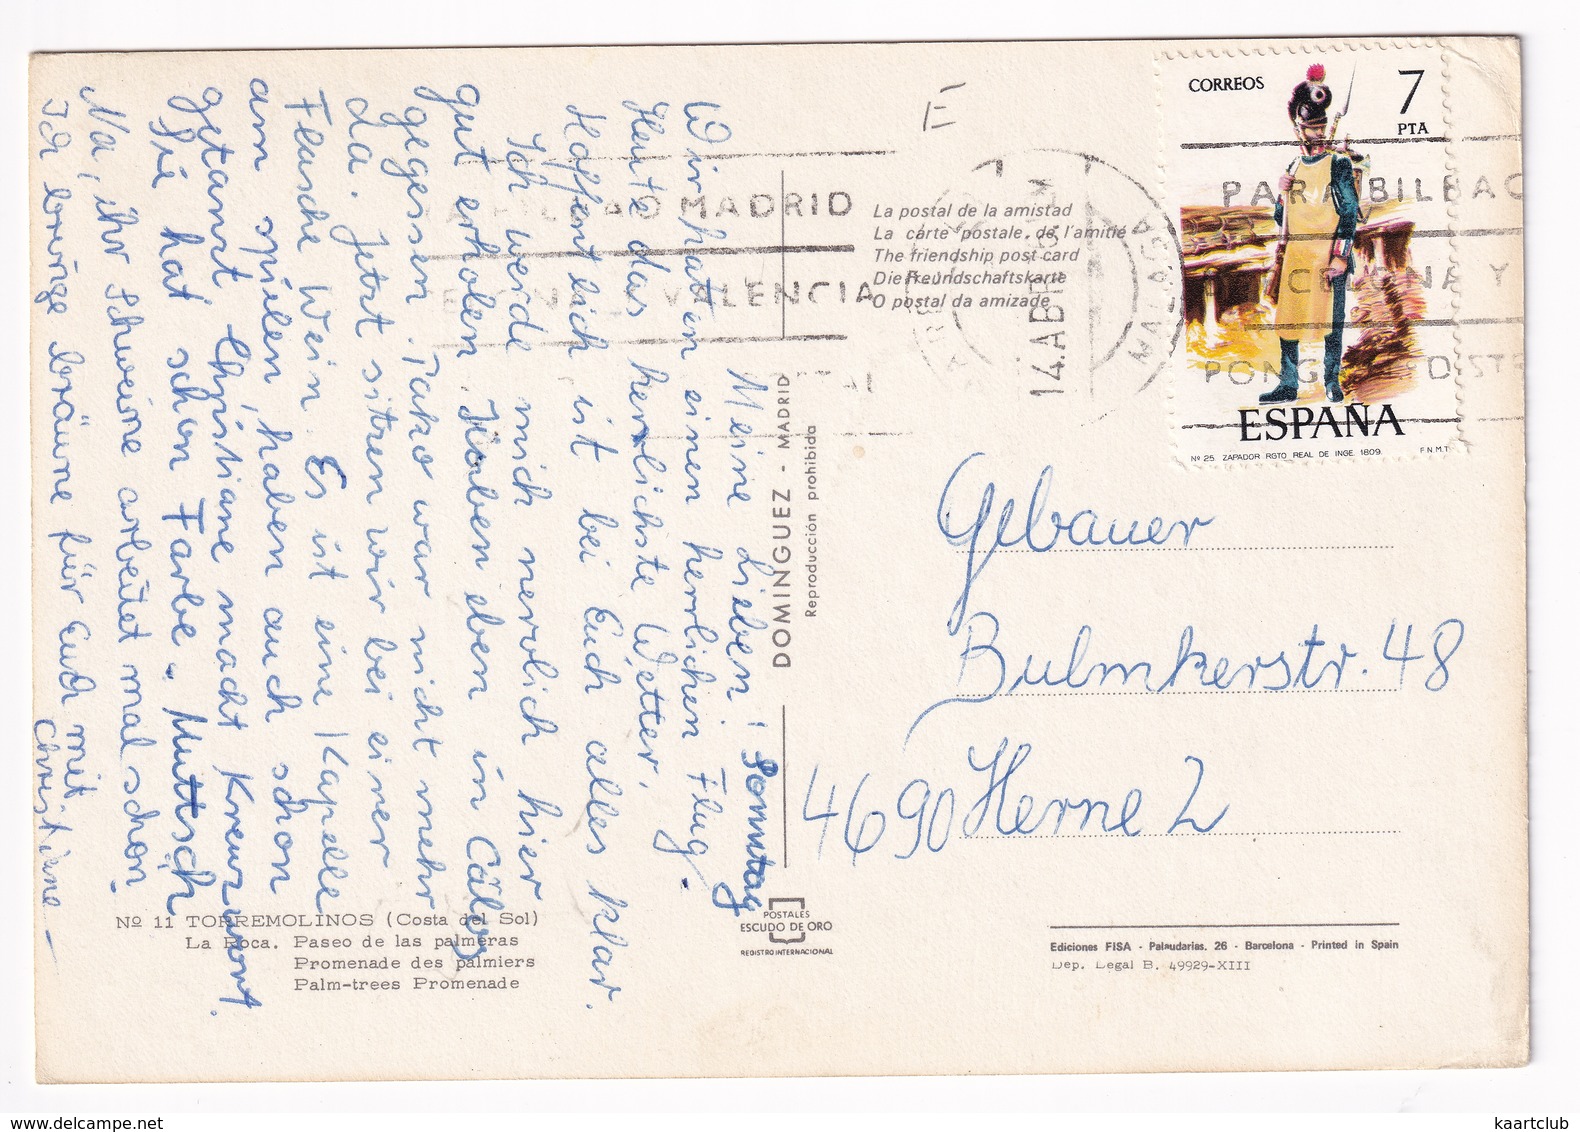 Meine Lieben! Sonntag
Wir hatten einen herrlichen Flug.
Heute das herrlichste Wetter.
Hoffentlich ist bei Euch alles klar.
Ich werde mich nervlich hier
gut erholen. Haben eben in
gegessen. Tako war nicht mehr
da. Jetzt sitzen wir bei einer
Flasche Wein. Es ist eine Kapelle
am spielen, haben auch schon
getanzt. Christiane macht Kreuzwort.
Sie hat schon Farbe.
Na, ihr Schweine arbeitet mal schön
Ich bringe bräune für Euch mit
Christine
E
CORREOS
7
PTA
ESPAÑA
Nº 25 ZAPADOR RGTO REAL DE INGE. 1809. F.N.M.T.
MADRID
VALENCIA
PARA BILBAO
14.ABR
MALAGA
La postal de la amistad
La carte postale de l'amitié
The friendship post card
Die Freundschaftskarte
O postal da amizade
DOMINGUEZ - MADRID
Reproducción prohibida
Gebauer
Bulmkerstr. 48
4690 Herne 2
POSTALES
ESCUDO DE ORO
REGISTRO INTERNACIONAL
Nº 11 TORREMOLINOS (Costa del Sol)
La Roca. Paseo de las palmeras
Promenade des palmiers
Palm-trees Promenade
Ediciones FISA - Palaudarias, 26 - Barcelona - Printed in Spain
Dep. Legal B. 49929-XIII
kaartclub